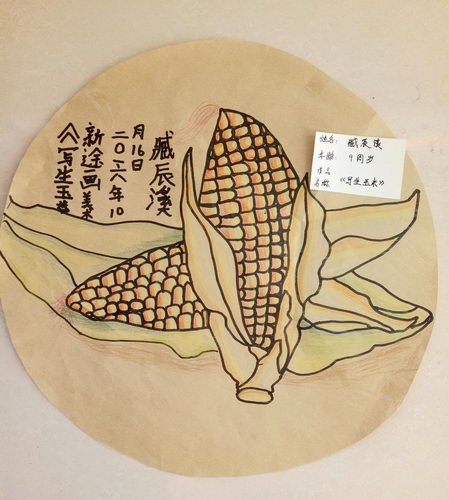 《写生玉米
新途画美术
二〇一八年10
月16日
臧辰溪
姓名: 臧辰溪
年龄: 9周岁
作品
名称: 《写生玉米》